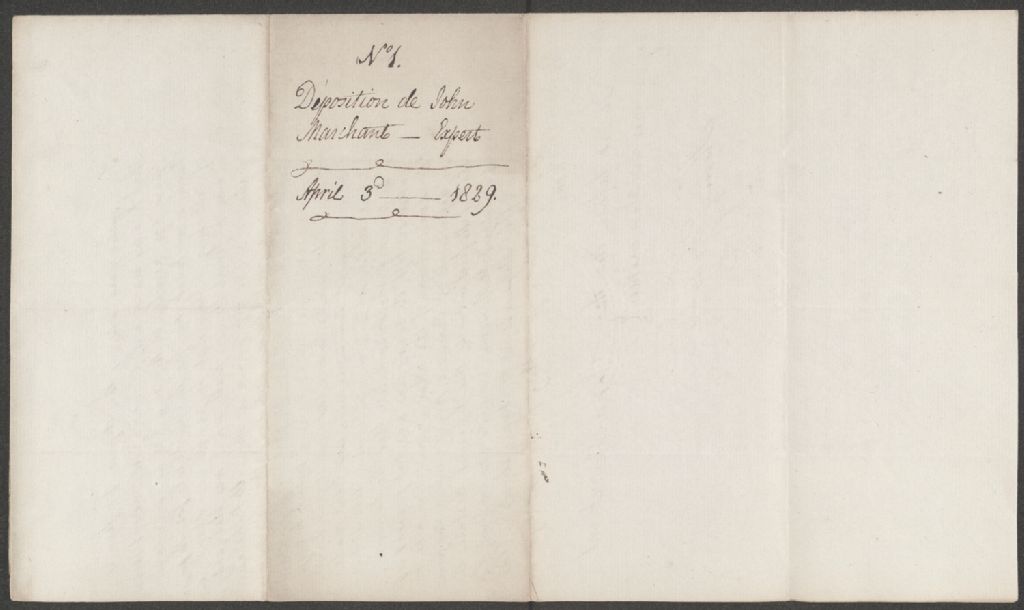 N° 1.
Déposition de John
Marchant — Expert
April 3d —— 1829.